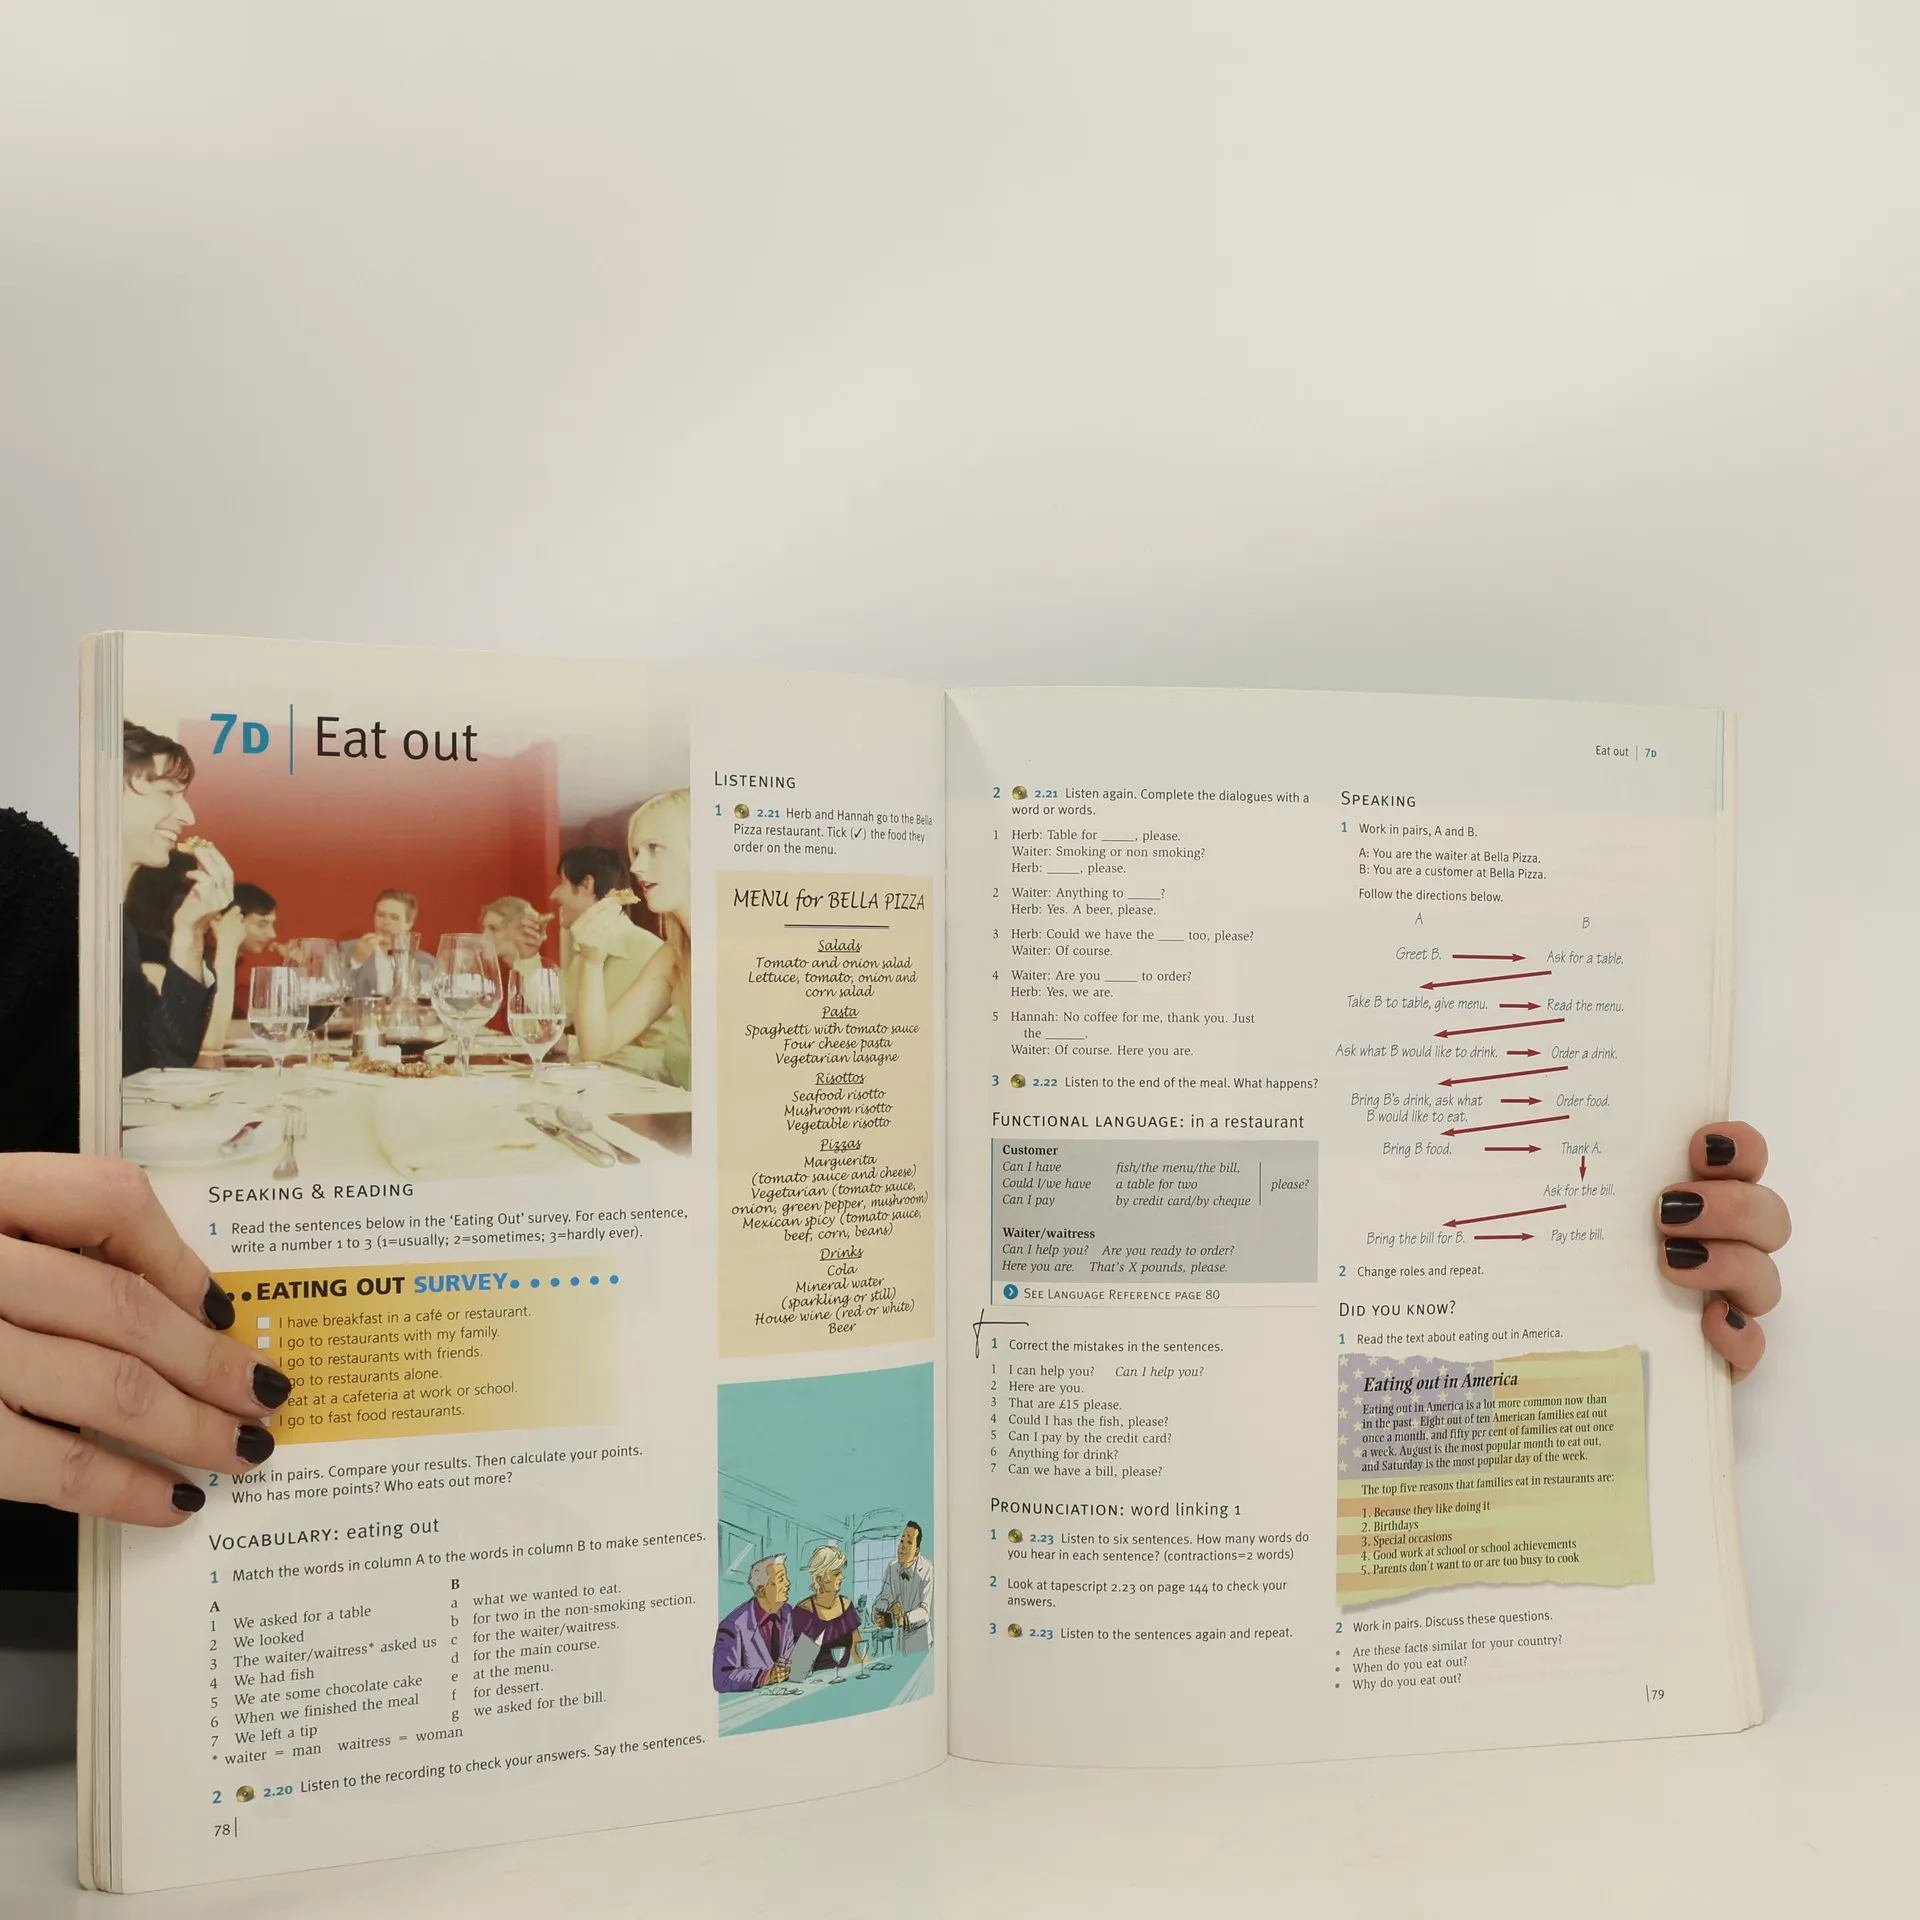 7D | Eat out
SPEAKING & READING
1 Read the sentences below in the ‘Eating Out’ survey. For each sentence,
write a number 1 to 3 (1=usually; 2=sometimes; 3=hardly ever).
EATING OUT SURVEY
I have breakfast in a café or restaurant.
I go to restaurants with my family.
I go to restaurants with friends.
go to restaurants alone.
eat at a cafeteria at work or school.
I go to fast food restaurants.
2 Work in pairs. Compare your results. Then calculate your points.
Who has more points? Who eats out more?
VOCABULARY: eating out
1 Match the words in column A to the words in column B to make sentences.
A
1 We asked for a table
2 We looked
3 The waiter/waitress* asked us
4 We had fish
5 We ate some chocolate cake
6 When we finished the meal
7 We left a tip
B
a what we wanted to eat.
b for two in the non-smoking section.
c for the waiter/waitress.
d for the main course.
e at the menu.
f for dessert.
g we asked for the bill.
* waiter = man waitress = woman
2 2.20 Listen to the recording to check your answers. Say the sentences.
78
LISTENING
1 2.21 Herb and Hannah go to the Bella
Pizza restaurant. Tick (✓) the food they
order on the menu.
MENU for BELLA PIZZA
Salads
Tomato and onion salad
Lettuce, tomato, onion and
corn salad
Pasta
Spaghetti with tomato sauce
Four cheese pasta
Vegetarian lasagne
Risottos
Seafood risotto
Mushroom risotto
Vegetable risotto
Pizzas
Marguerita
(tomato sauce and cheese)
Vegetarian (tomato sauce,
onion, green pepper, mushroom)
Mexican spicy (tomato sauce,
beef, corn, beans)
Drinks
Cola
Mineral water
(sparkling or still)
House wine (red or white)
Beer
Eat out | 7D
2 2.21 Listen again. Complete the dialogues with a
word or words.
1 Herb: Table for _____, please.
Waiter: Smoking or non smoking?
Herb: _____, please.
2 Waiter: Anything to _____?
Herb: Yes. A beer, please.
3 Herb: Could we have the ____ too, please?
Waiter: Of course.
4 Waiter: Are you _____ to order?
Herb: Yes, we are.
5 Hannah: No coffee for me, thank you. Just
the ______.
Waiter: Of course. Here you are.
3 2.22 Listen to the end of the meal. What happens?
FUNCTIONAL LANGUAGE: in a restaurant
Customer
Can I have fish/the menu/the bill,
Could I/we have a table for two please?
Can I pay by credit card/by cheque
Waiter/waitress
Can I help you? Are you ready to order?
Here you are. That's X pounds, please.
SEE LANGUAGE REFERENCE PAGE 80
1 Correct the mistakes in the sentences.
1 I can help you? Can I help you?
2 Here are you.
3 That are £15 please.
4 Could I has the fish, please?
5 Can I pay by the credit card?
6 Anything for drink?
7 Can we have a bill, please?
PRONUNCIATION: word linking 1
1 2.23 Listen to six sentences. How many words do
you hear in each sentence? (contractions=2 words)
2 Look at tapescript 2.23 on page 144 to check your
answers.
3 2.23 Listen to the sentences again and repeat.
SPEAKING
1 Work in pairs, A and B.
A: You are the waiter at Bella Pizza.
B: You are a customer at Bella Pizza.
Follow the directions below.
A B
Greet B. Ask for a table.
Take B to table, give menu. Read the menu.
Ask what B would like to drink. Order a drink.
Bring B's drink, ask what Order food.
B would like to eat.
Bring B food. Thank A.
Ask for the bill.
Bring the bill for B. Pay the bill.
2 Change roles and repeat.
DID YOU KNOW?
1 Read the text about eating out in America.
Eating out in America
Eating out in America is a lot more common now than
in the past. Eight out of ten American families eat out
once a month, and fifty per cent of families eat out once
a week. August is the most popular month to eat out,
and Saturday is the most popular day of the week.
The top five reasons that families eat in restaurants are:
1. Because they like doing it
2. Birthdays
3. Special occasions
4. Good work at school or school achievements
5. Parents don't want to or are too busy to cook
2 Work in pairs. Discuss these questions.
• Are these facts similar for your country?
• When do you eat out?
• Why do you eat out?
79